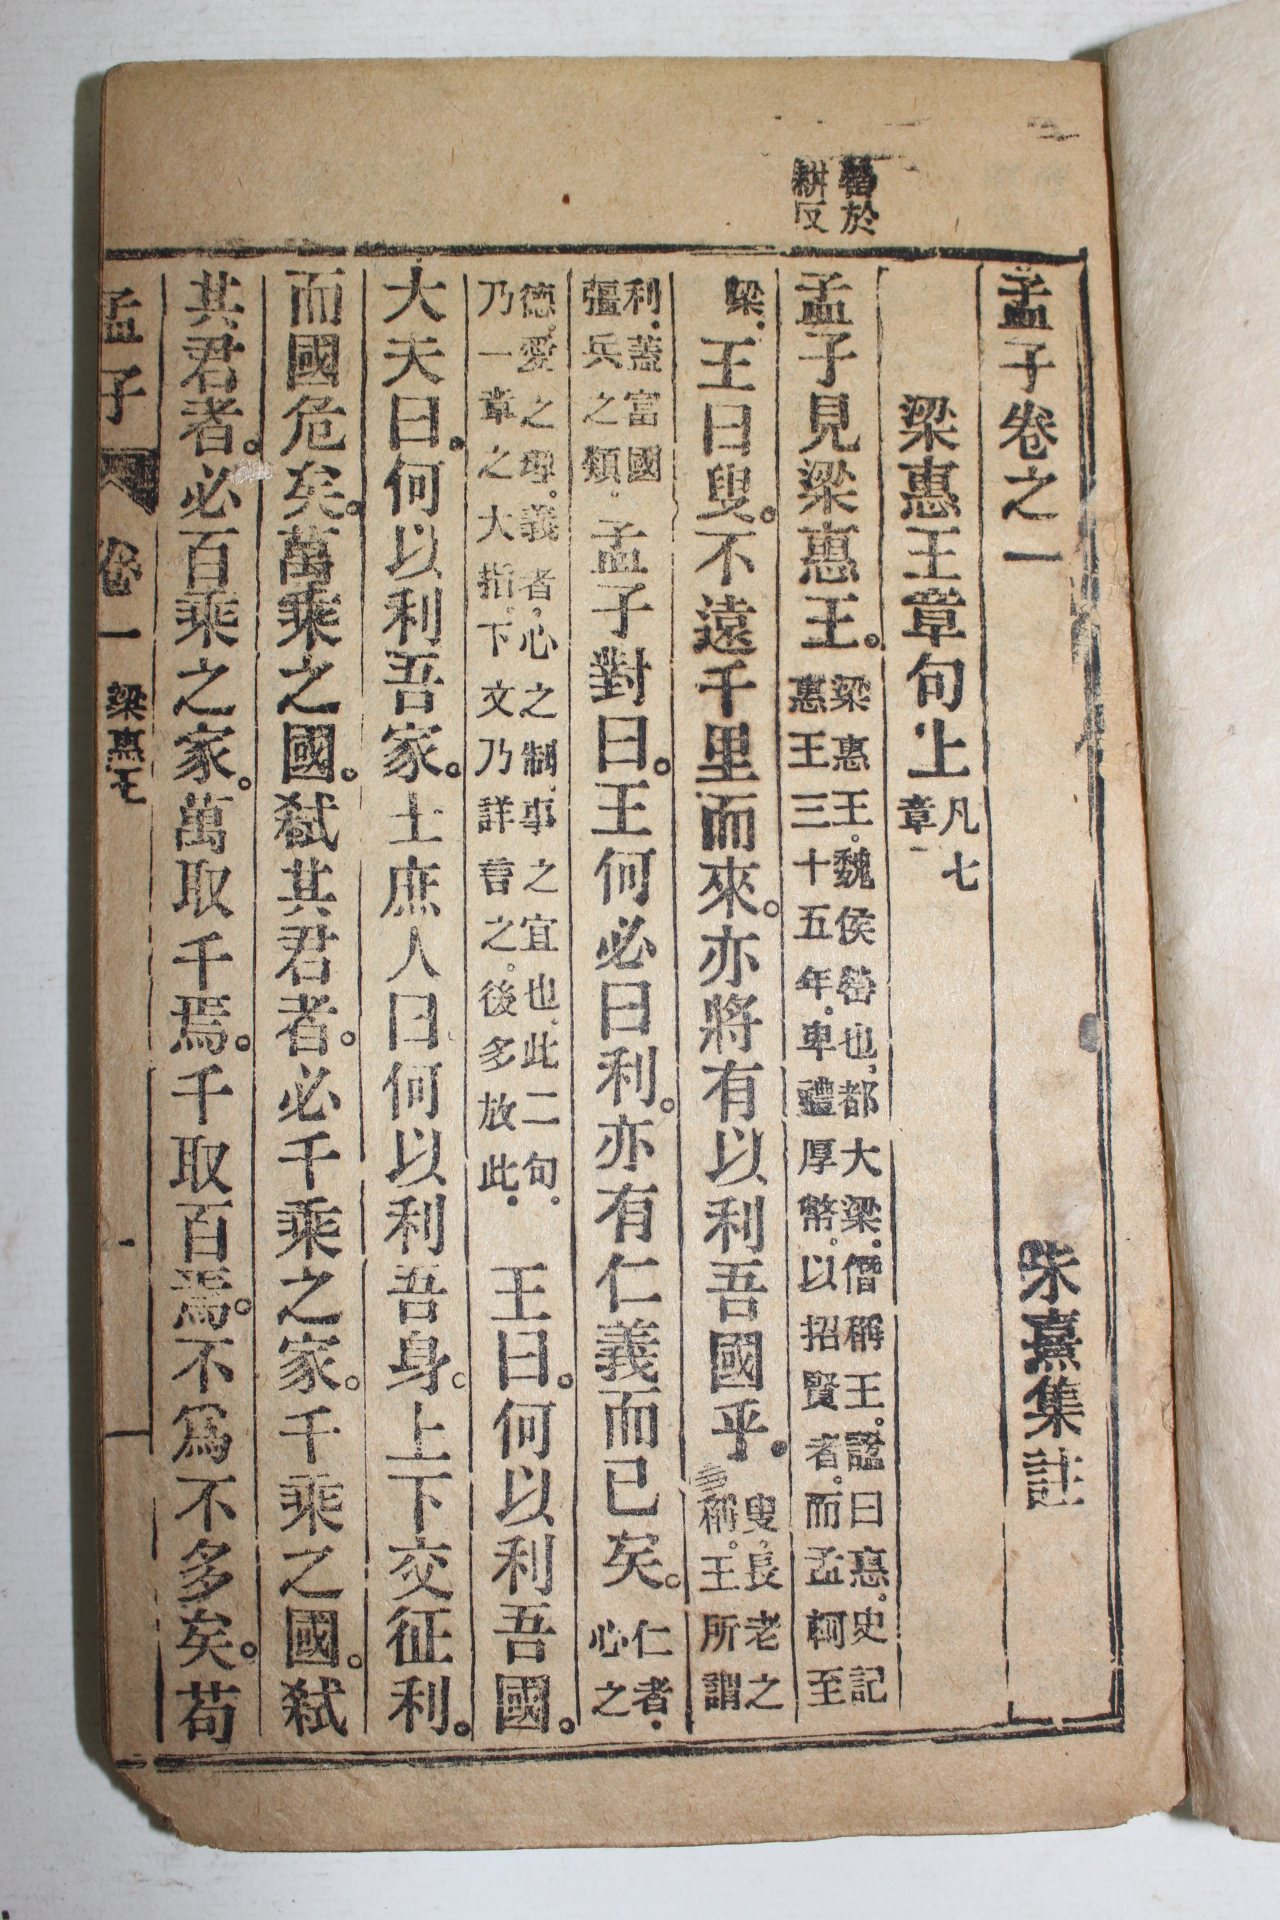 罃於
耕反
孟子卷之一 朱熹集註
梁惠王章句上 凡七
章
孟子見梁惠王。梁惠王。魏侯罃也、都大梁。僭稱王。諡曰惠。史記
惠王三十五年、卑禮厚幣。以招賢者。而孟軻至
梁、王曰叟。不遠千里而來。亦將有以利吾國乎。叟、長老之
稱。王所謂
利、蓋富國
彊兵之類。孟子對曰。王何必曰利。亦有仁義而已矣。仁者、
心之
德、愛之理。義者、心之制、事之宜也、此二句、
乃一章之大指、下文乃詳言之。後多放此、王曰。何以利吾國。
大夫曰。何以利吾家。士庶人曰何以利吾身。上下交征利。
而國危矣。萬乘之國。弒其君者。必千乘之家。千乘之國。弒
其君者。必百乘之家。萬取千焉。千取百焉。不爲不多矣。苟
孟子 卷一 梁惠王